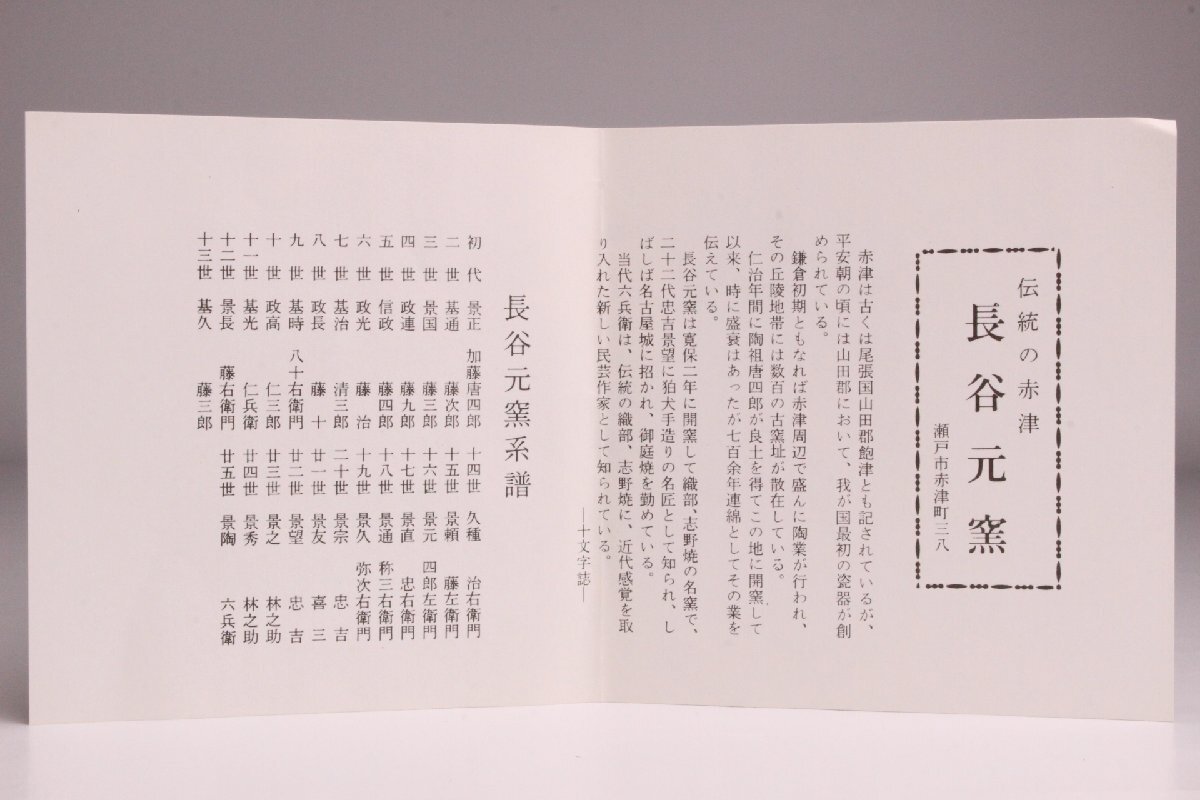 伝統の赤津
長谷元窯
瀬戸市赤津町三八
赤津は古くは尾張国山田郡飽津とも記されているが、
平安朝の頃には山田郡において、我が国最初の瓷器が創
められている。
鎌倉初期ともなれば赤津周辺で盛んに陶業が行われ、
その丘陵地帯には数百の古窯址が散在している。
仁治年間に陶祖唐四郎が良土を得てこの地に開窯して
以来、時に盛衰はあったが七百余年連綿としてその業を
伝えている。
長谷元窯は寛保二年に開窯して織部、志野焼の名窯で、
二十二代忠吉景望に狛犬手造りの名匠として知られ、し
ばしば名古屋城に招かれ、御庭焼を勤めている。
当代六兵衛は、伝統の織部、志野焼に、近代感覚を取
り入れた新しい民芸作家として知られている。
―十文字誌―
長谷元窯系譜
初代 景正 加藤唐四郎
二世 基通 藤次郎
三世 景国 藤三郎
四世 政連 藤九郎
五世 信政 藤四郎
六世 政光 藤治
七世 基治 清三郎
八世 政長 藤十
九世 基時 八十右衛門
十世 政高 仁三郎
十一世 基光 仁兵衛
十二世 景長 藤右衛門
十三世 基久 藤三郎
十四世 久種 治右衛門
十五世 景頼 藤左衛門
十六世 景元 四郎左衛門
十七世 景直 忠右衛門
十八世 景通 称三右衛門
十九世 景久 弥次右衛門
二十世 景宗 忠吉
廿一世 景友 喜三
廿二世 景望 忠吉
廿三世 景之 林之助
廿四世 景秀 林之助
廿五世 景陶 六兵衛